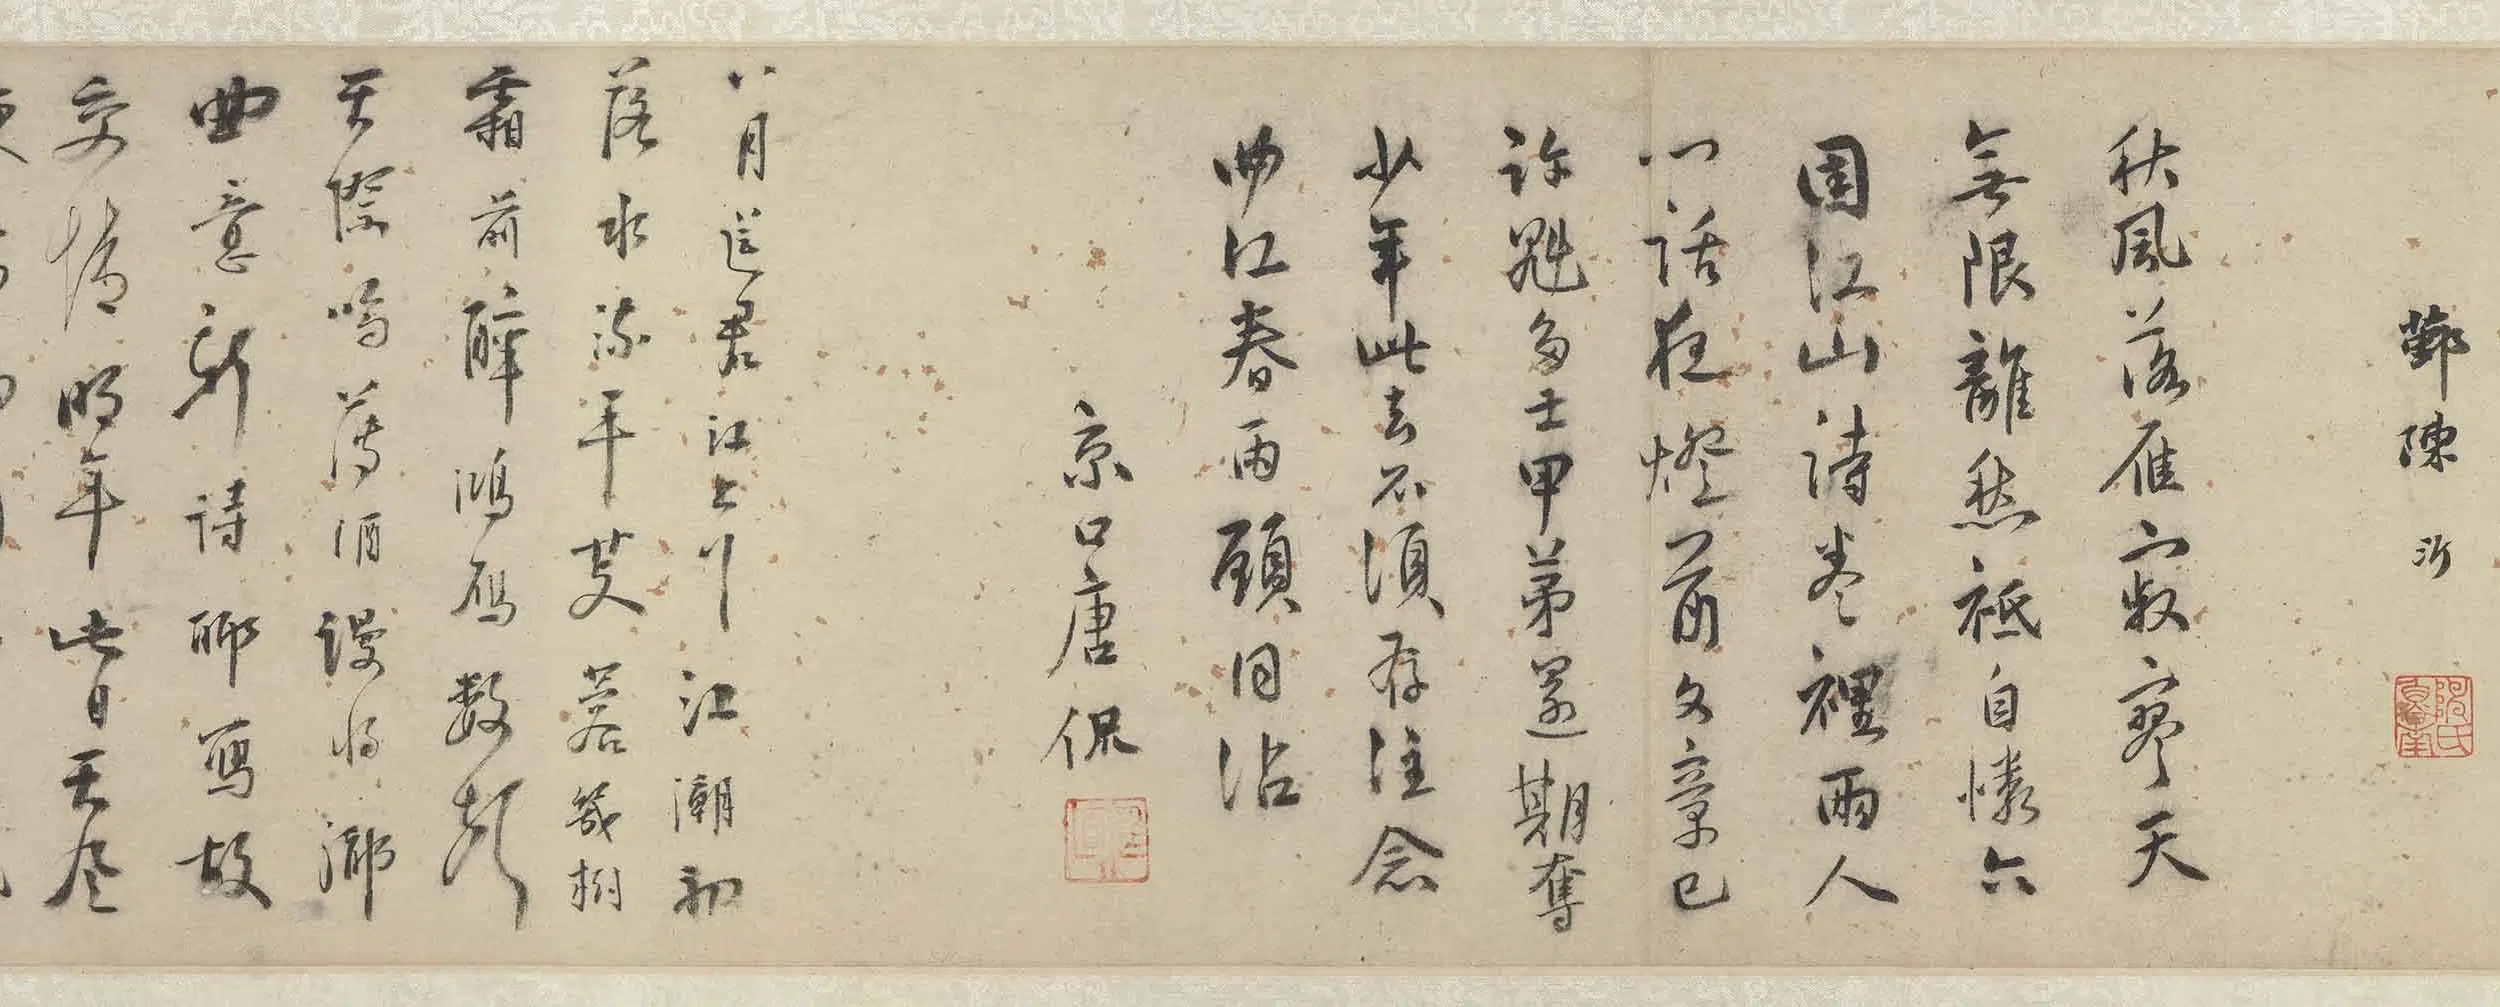 鄞陳沂
陳氏魯南
秋風落雁寂寥天
無限離愁祗自憐六
國江山詩卷裡兩人
心話夜燈前文章已
許魁多士甲第還期奪
少年此去不須存注念
曲江春雨願同沾
京口唐侃
八月送君江上行江潮初
落水流平芙蓉幾樹
霜前醉鴻雁數聲
天際鳴薄酒謾将鄉
曲意新詩聊寫故
交情明年此日天